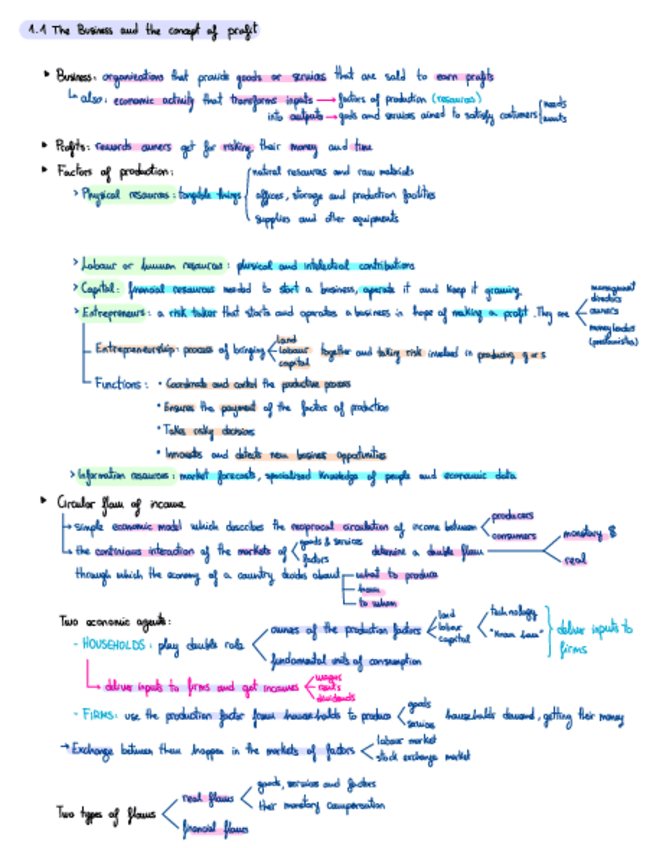 1.1 The Business and the concept of profit
▸ Business: organizations that provide goods or services that are sold to earn profits
↳ also: economic activity that transforms inputs → factors of production (resources)
into outputs → gods and services aimed to satisfy costumers
needs
wants
▸ Profits: rewards owners get for risking their money and time
▸ Factors of production:
> Physical resources: tangible things
natural resources and raw materials
offices, storage and production facilities
supplies and other equipments
> Labour or human resources: physical and intelectual contributions
> Capital: financial resources needed to start a business, operate it and keep it growing
> Entrepreneurs: a risk taker that starts and operates a business in hope of making a profit. They are
management
directors
owners
moneylenders
Entrepreneurship: process of bringing
land
labour
capital
together and taking risk involved in producing g or s
Functions: • Coordinate and control the productive process
• Ensures the payment of the factors of production
• Takes risky decisions
• Innovates and detects new busines opportunities
> Information resources: market forecasts, specialized knowledge of people and economic data
▸ Circular flow of income
→ simple economic model which describes the reciprocal circulation of income between
producers
consumers
→ the continuous interaction of the markets of
goods & services
factors
determine a double flow
monetary $
real
through which the economy of a country decides about
what to produce
how
to whom
Two economic agents:
- HOUSEHOLDS: play double role
owners of the production factors
land
labour
capital
technology
"Know how"
deliver inputs to
firms
fundamental units of consumption
→ deliver inputs to firms and get incomes
wages
rents
dividends
- FIRMS: use the production factor from households to produce
goods
services
households demand, getting their money
→ Exchange between them happen in the markets of factors
labour market
stock exchange market
Two types of flows
real flows
goods, services and factors
their monetary compensation
financial flows